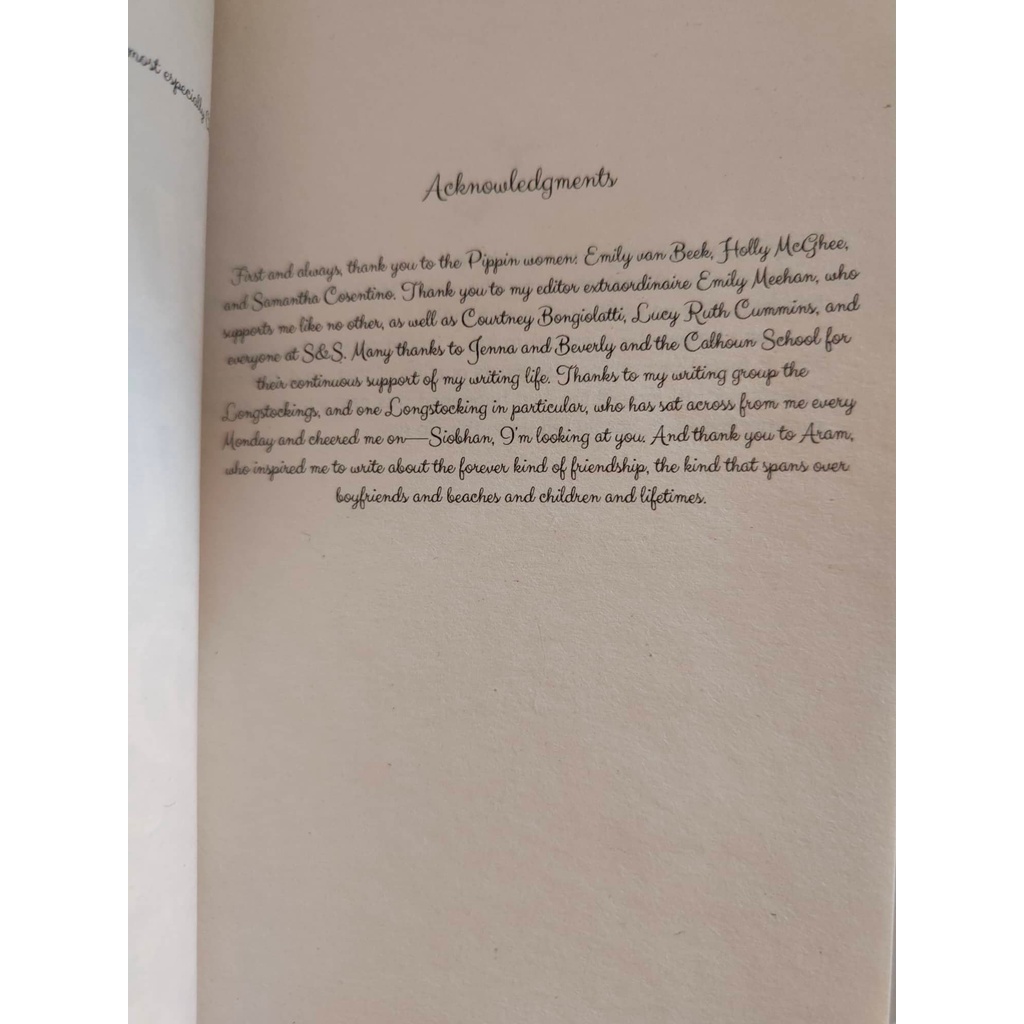 most especially
Acknowledgments
First and always, thank you to the Pippin women: Emily van Beek, Holly McGhee,
and Samantha Cosentino. Thank you to my editor extraordinaire Emily Meehan, who
supports me like no other, as well as Courtney Bongiolatti, Lucy Ruth Cummins, and
everyone at S&S. Many thanks to Jenna and Beverly and the Calhoun School for
their continuous support of my writing life. Thanks to my writing group the
Longstockings, and one Longstocking in particular, who has sat across from me every
Monday and cheered me on—Siobhan, I'm looking at you. And thank you to Aram,
who inspired me to write about the forever kind of friendship, the kind that spans over
boyfriends and beaches and children and lifetimes.